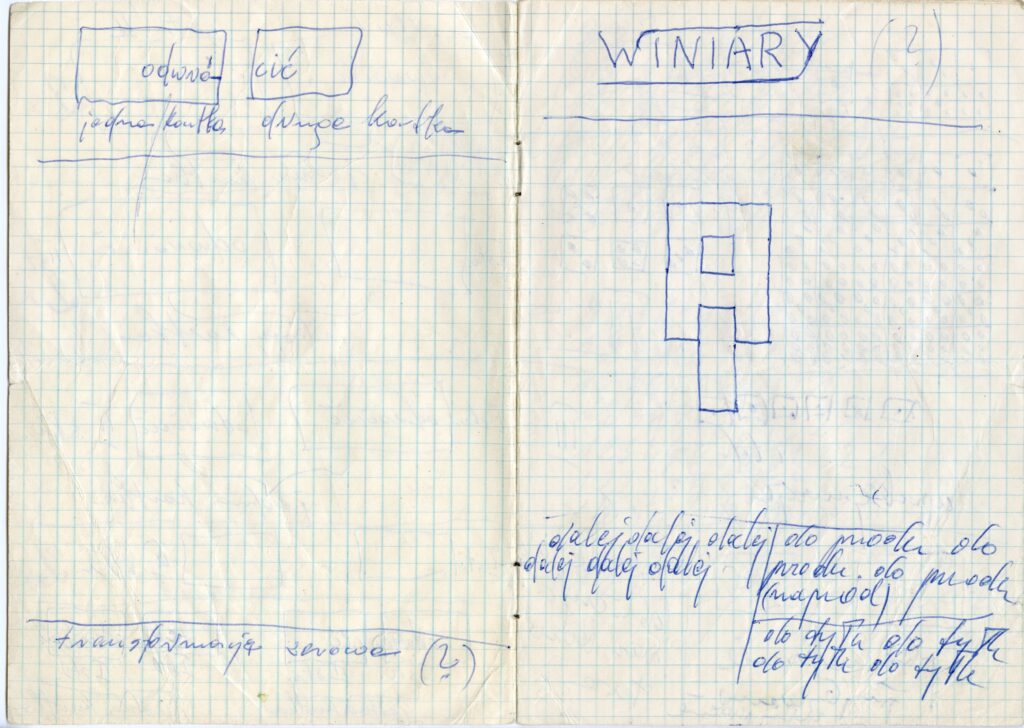 odwró- cić
jedna kartka druga kartka
transformacja zerowa (?)
WINIARY (?)
dalej dalej dalej
dalej dalej dalej
do przodu do
przodu. do przodu
(naprzód)
do tyłu do tyłu
do tyłu do tyłu